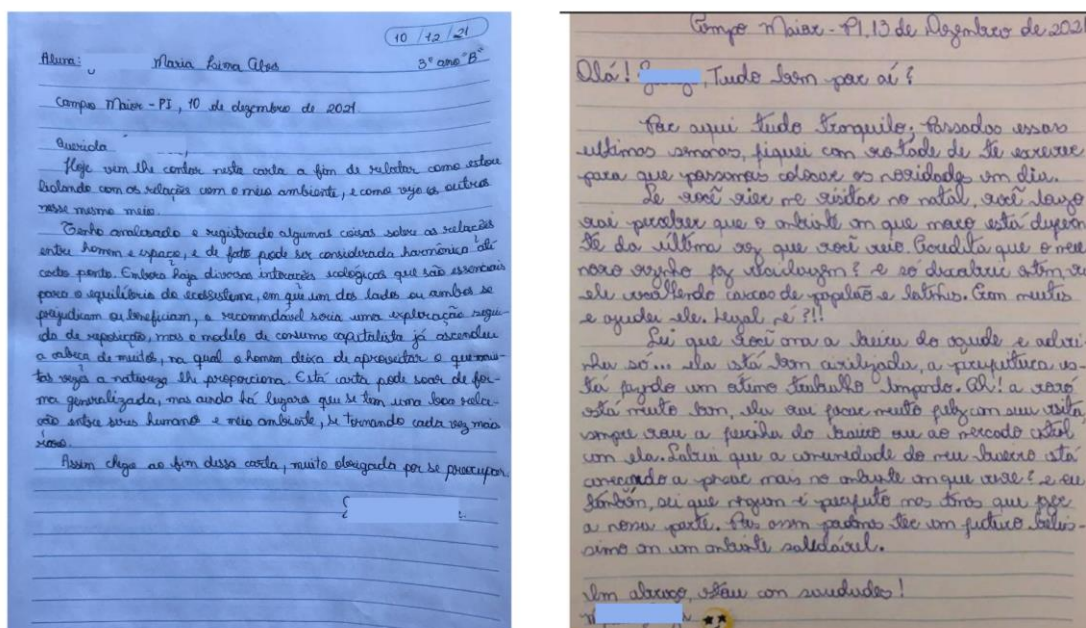 10/12/21
Aluna: Maria Lima Alves 3º ano "B"
Campo Maior - PI, 10 de dezembro de 2021
Querida
Hoje vim lhe contar nesta carta a fim de relatar como estou
lidando com as relações com o meio ambiente, e como vejo os outros
nesse mesmo meio.
Tenho analisado e registrado algumas coisas sobre as relações
entre homem e espaço, e de fato pode ser considerada harmônica até
certo ponto. Embora haja diversas interações ecológicas que são essenciais
para o equilíbrio do ecossistema, em que um dos lados ou ambos se
prejudicam ou beneficiam, o recomendável seria uma exploração segui-
da de reposição, mas o modelo de consumo capitalista já ascendeu
a cabeça de muitos, na qual o homem deixa de aproveitar o que mui-
tas vezes a natureza lhe proporciona. Está carta pode soar de for-
ma generalizada, mas ainda há lugares que se tem uma boa rela-
ção entre seres humanos e meio ambiente, se tornando cada vez mais
raro.
Assim chego ao fim dessa carta, muito obrigada por se preocupar.
Campo Maior - PI, 13 de Dezembro de 2021
Olá! Tudo bem por aí?
Por aqui tudo tranquilo; Passados essas
ultimas semanas, fiquei com vontade de te escrever
para que possamos colocar as novidades em dia.
Se você vier me visitar no natal, você logo
vai perceber que o ambiente em que moro está diferen
te da última vez que você veio. Acredita que o meu
novo vizinho faz reciclagem? e só descobrir ontem vi
ele recolhendo caixas de papelão e latinhas. Eram muitas
e ajudei ele. Legal né?!!
Sei que você ama a beira do açude e advi-
nha só... ela está bem arilizada, a prefeitura es-
tá fazendo um ótimo trabalho limpando. Ah! a vovó
está muito bem, ela vai ficar muito feliz com sua visita,
sempre vou a feirinha do bairro ou ao mercado central
com ela. Sabia que a comunidade do meu bairro está
começando a pensar mais no ambiente em que vive? e eu
também, sei que ninguem é perfeito mas temos que fazer
a nossa parte. Pois assim podemos ter um futuro belis-
simo em um ambiente saldável.
Um abraço, estou com saudades!